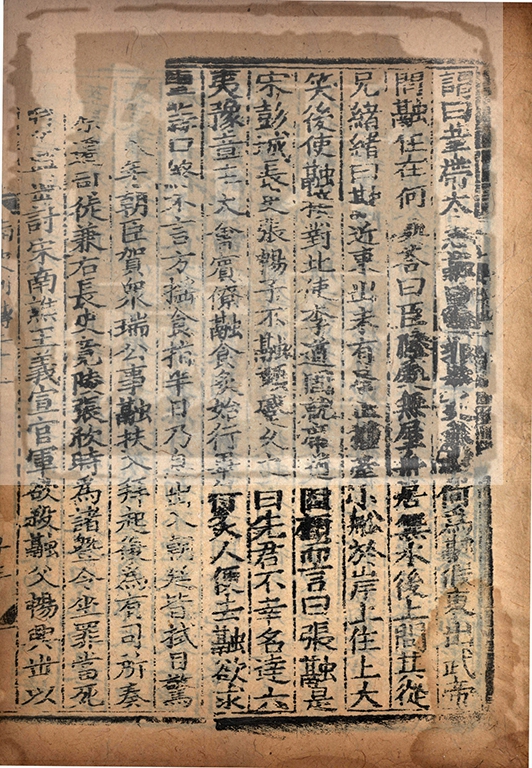 謂曰革帶太急融 非步吏急帶何為融假東出武帝
問融住在何處荅曰臣陸處無屋舟居無水後上問其從
兄緒緒曰融近東出未有居止權牽小舩於岸上住上大
笑後使融接對北使李道固就席道固顧而言曰張融是
宋彭城長史張暢子不融嚬蹙久之曰先君不幸名達六
夷豫章王大會賓僚融食炙始行畢行炙人便去融欲求
蒜口終不言方搖食指半日乃息出入朝廷皆拭目驚
年朝臣賀衆瑞公事融扶入拜起復爲有司所奏
遷司徒兼右長史竟陵張欣時爲諸暨令坐罪當死
世討宋南譙王義宣官軍欲殺融父暢興世以